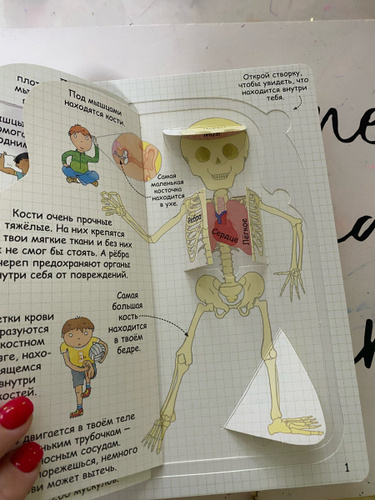 Под мышцами
находятся кости.
Открой створку,
чтобы увидеть, что
находится внутри
тебя.
Самая
маленькая
косточка
находится
в ухе.
Рёбра
Сердце
Лёгкое
Кости очень прочные
тяжёлые. На них крепятся
твои мягкие ткани и без них
не смог бы стоять. А рёбра
череп предохраняют органы
нутри себя от повреждений.
Самая
большая
кость
находится
в твоём
бедре.
етки крови
разуются
костном
зге, нахо-
ящемся
внутри
костей.
двигается в твоём теле
еньким трубочкам —
носным сосудам.
порежешься, немного
ви может вытечь.
1